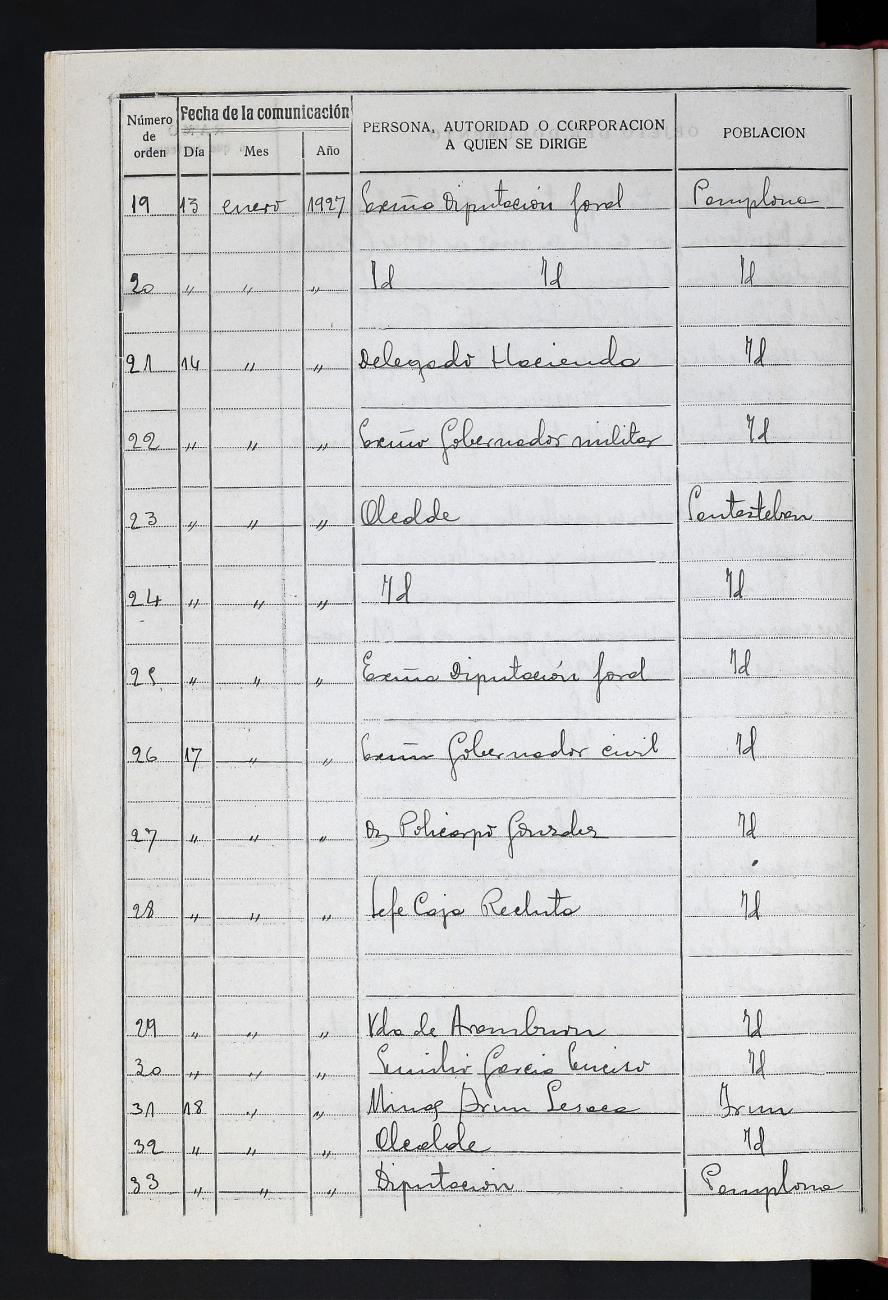 Número de orden Fecha de la comunicación PERSONA, AUTORIDAD O CORPORACION A QUIEN SE DIRIGE POBLACION
Día Mes Año
19 13 enero 1927 Excma Diputación foral Pamplona
20 " " " Id Id Id
21 14 " " Delegado Hacienda Id
22 " " " Excmo Gobernador militar Id
23 " " " Alcalde Santesteban
24 " " " Id Id
25 " " " Excma Diputación foral Id
26 17 " " Excmo Gobernador civil Id
27 " " " Policarpo Id
28 " " " Jefe Caja Recluta Id
29 " " " Vda de Aramburu Id
30 " " " Emilio Garcia Enciso Id
31 18 " " Minas Irun Lesaca Irun
32 " " " Alcalde Id
33 " " " Diputacion Pamplona